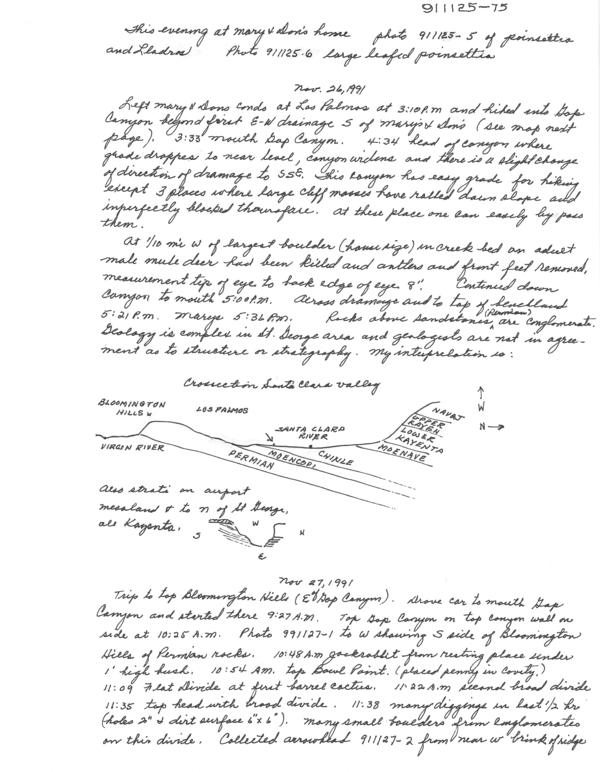 911125-75
This evening at Mary & Don's home photo 911125-5 of poinsettia
and Lladros Photo 911125-6 large leafed poinsettia
Nov. 26, 1991
Left Mary & Dons condo at Los Palmos at 3:10 P.m and hiked into Gap
Canyon beyond first E-W drainage S of Mary's & Don's (see map next
page). 3:33 mouth Gap Canyon. 4:34 head of canyon where
grade droppes to near level, canyon widens and there is a slight change
of direction of drainage to SSE. This canyon has easy grade for hiking
except 3 places where large cliff masses have rolled down slope and
imperfectly blocked thorofare. At these place one can easily by pass
them.
At 1/10 mi W of largest boulder (house size) in creek bed an adult
male mule deer had been killed and antlers and front feet removed,
measurement tip of eye to back edge of eye 8". Continued down
Canyon to mouth 5:00 P.m. Across drainage and to top of benchland
5:21 P.m. Marys 5:36 P.m. Rocks above sandstones (Permian) are conglomerate.
Geology is complex in St. George area and geologists are not in agree-
ment as to structure or stratigraphy. My interpretation is:
Crossection Santa Clara valley
BLOOMINGTON HILLS W
LOS PALMOS
SANTA CLARA RIVER
VIRGIN RIVER
PERMIAN
MOENCOPI
CHINLE
MOENAVE
LOWER KAYENTA
UPPER KAYEN.
NAVAJ
W
N
Also strata on airport
mesaland & to N of St George,
all Kayenta.
S W N
E
Nov 27, 1991
Trip to top Bloomington Hills (E of Gap Canyon). Drove car to mouth Gap
Canyon and started there 9:27 A.m. Top Gap Canyon on top canyon wall on
side at 10:25 A.m. Photo 991127-1 to W showing S side of Bloomington
Hills of Permian rocks. 10:48 A.m jackrabbit from resting place under
1' high bush. 10:54 AM. top Bowl Point. (placed penny in cavity.)
11:09 Flat Divide at first barrel cactus. 11:22 A.m second broad divide
11:35 top head with broad divide. 11:38 many diggings in last 1/2 hr
(holes 2" & dirt surface 6"x6"). Many small boulders from conglomerates
on this divide. Collected arrowhead 911127-2 from near W brink of ridge